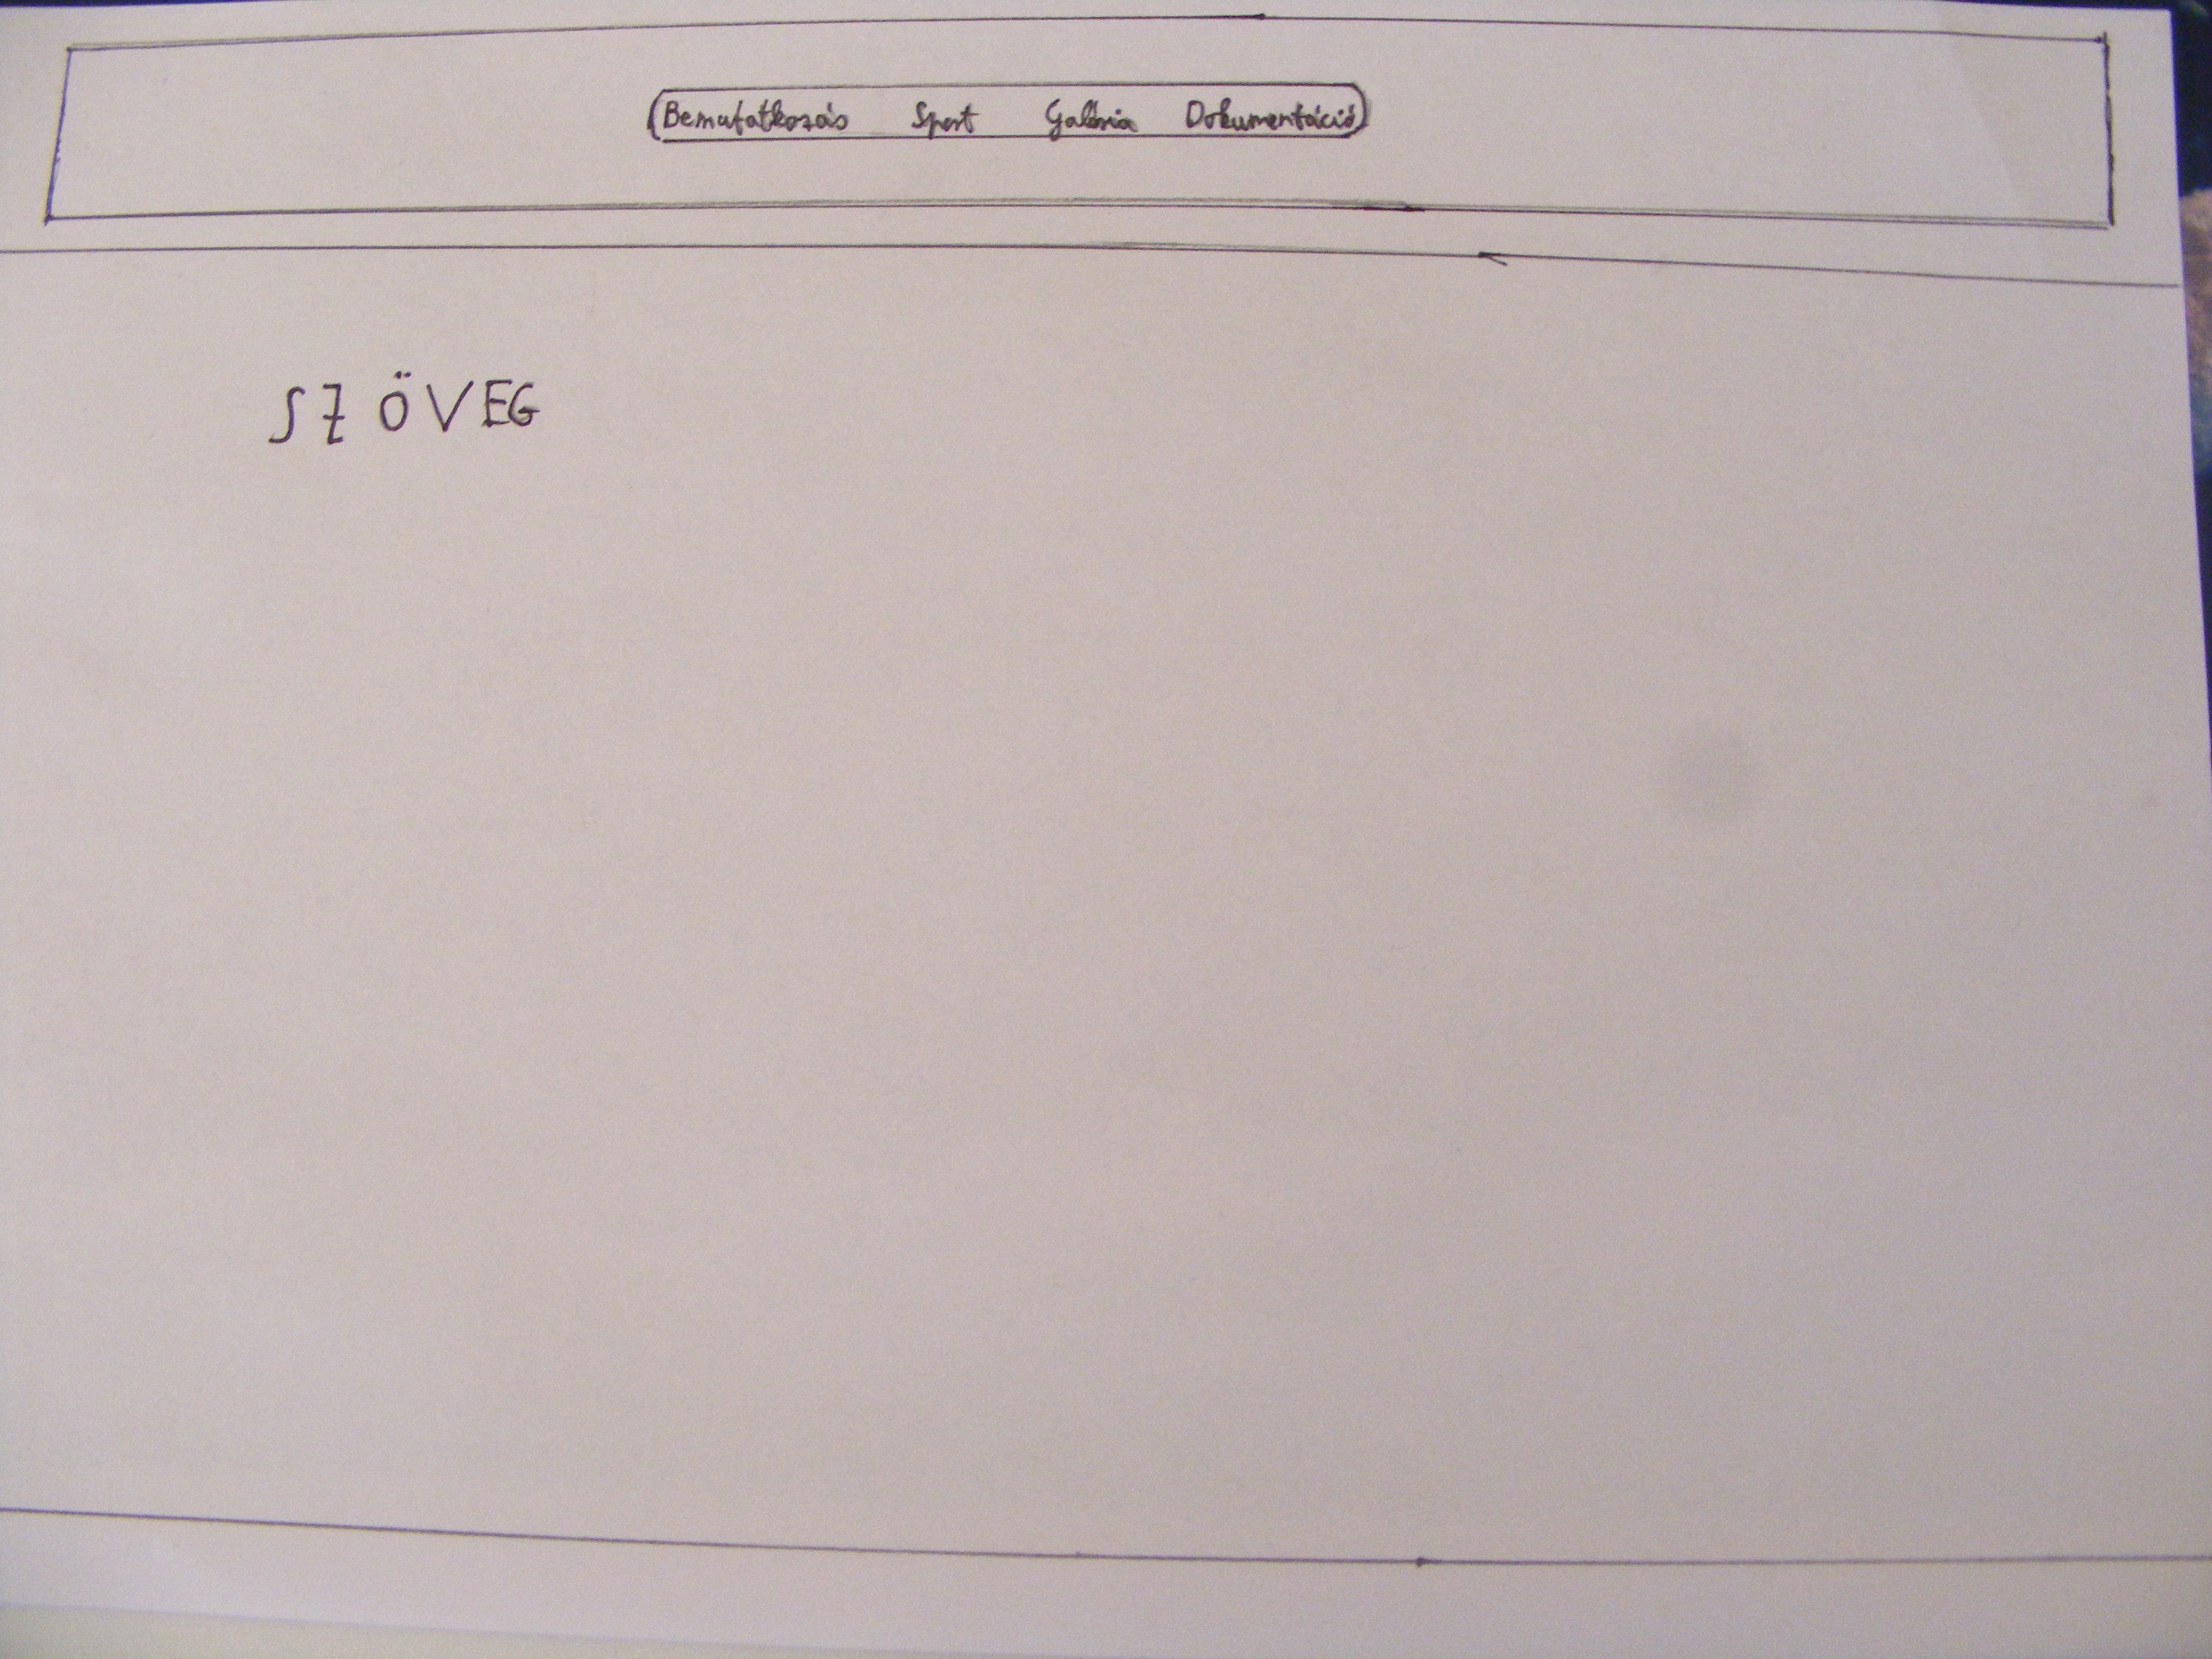 Bemutatkozás Sport Galéria Dokumentáció
SZÖVEG